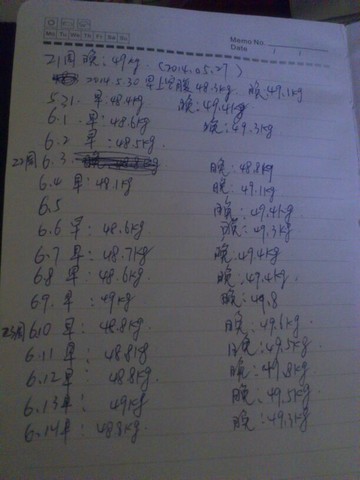 Memo No.
Mo Tu We Th Fr Sa Su
Date / /
21周 晚: 49kg. (2014.05.27)
2014.5.30 早上空腹 48.3kg 晚 49.1kg
5.31. 早: 48.4kg 晚: 49.4kg
6.1. 早: 48.6kg 晚: 49.3kg
6.2 早: 48.5kg.
22周 6.3 晚: 48.8kg
6.4 早: 48.1kg 晚: 49.1kg
6.5 晚: 49.4kg
6.6 早: 48.6kg 晚: 49.3kg
6.7 早: 48.7kg 晚: 49.4kg
6.8 早: 48.6kg 晚: 49.4kg.
6.9. 早: 49kg 晚: 49.8
23周 6.10 早: 48.8kg. 晚: 49.6kg.
6.11 早: 48.8kg 晚: 49.5kg.
6.12 早: 48.8kg. 晚: 49.8kg
6.13 早: 49kg 晚: 49.5kg
6.14 早: 48.8kg 晚: 49.3kg